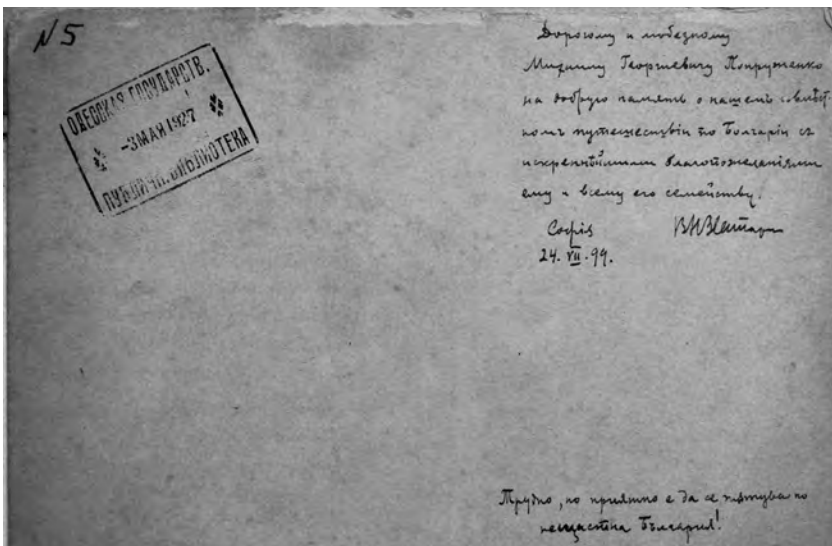 N 5
ОДЕССКАЯ ГОСУДАРСТВ.
-3 МАЯ 1927
ПУБЛИЧН. БИБЛИОТЕКА
Дорогому и любезному
Михаилу Георгиевичу Попруженко
на добрую память о нашемъ совмѣст-
номъ путешествіи по Болгаріи съ
искреннѣйшими благопожеланіями
ему и всему его семейству.
Софія
24. VII. 99.
Трудно, но приятно е да се пѫтува по
нещастна България!